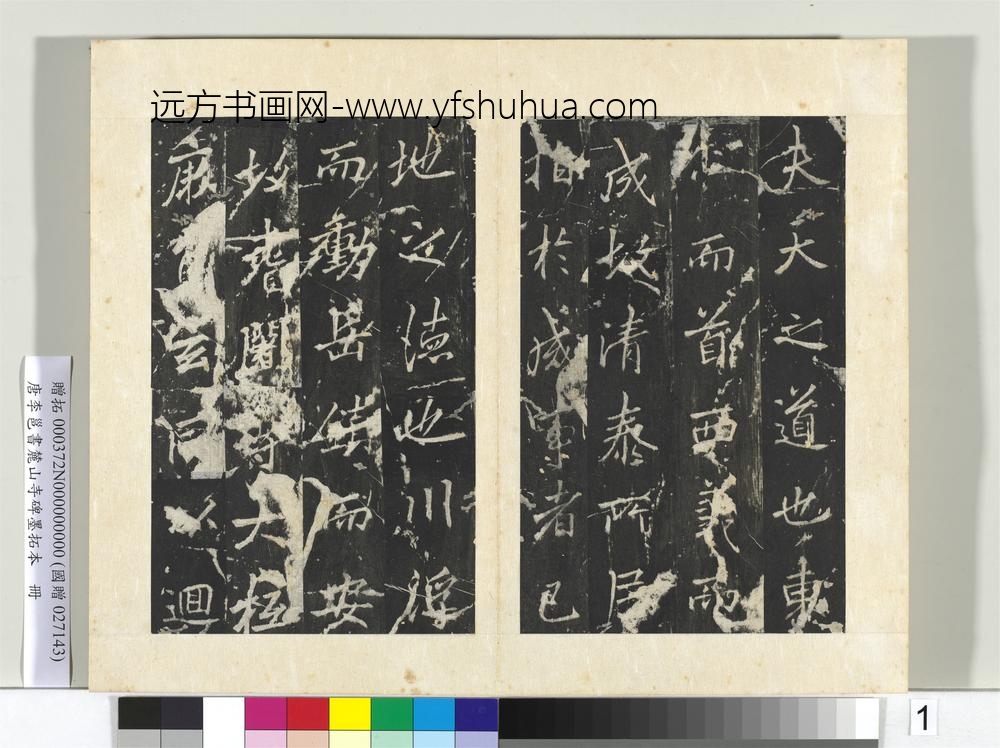 远方书画网-www.yfshuhua.com
夫天之道也東
仁而首西義而
成故清泰所居
指於成事者已
地之德也川浮
而動岳鎮而安
故耆闍
以迴
贈拓 000372N000000000 (國贈 027143)
唐李邕書麓山寺碑墨拓本 冊
1